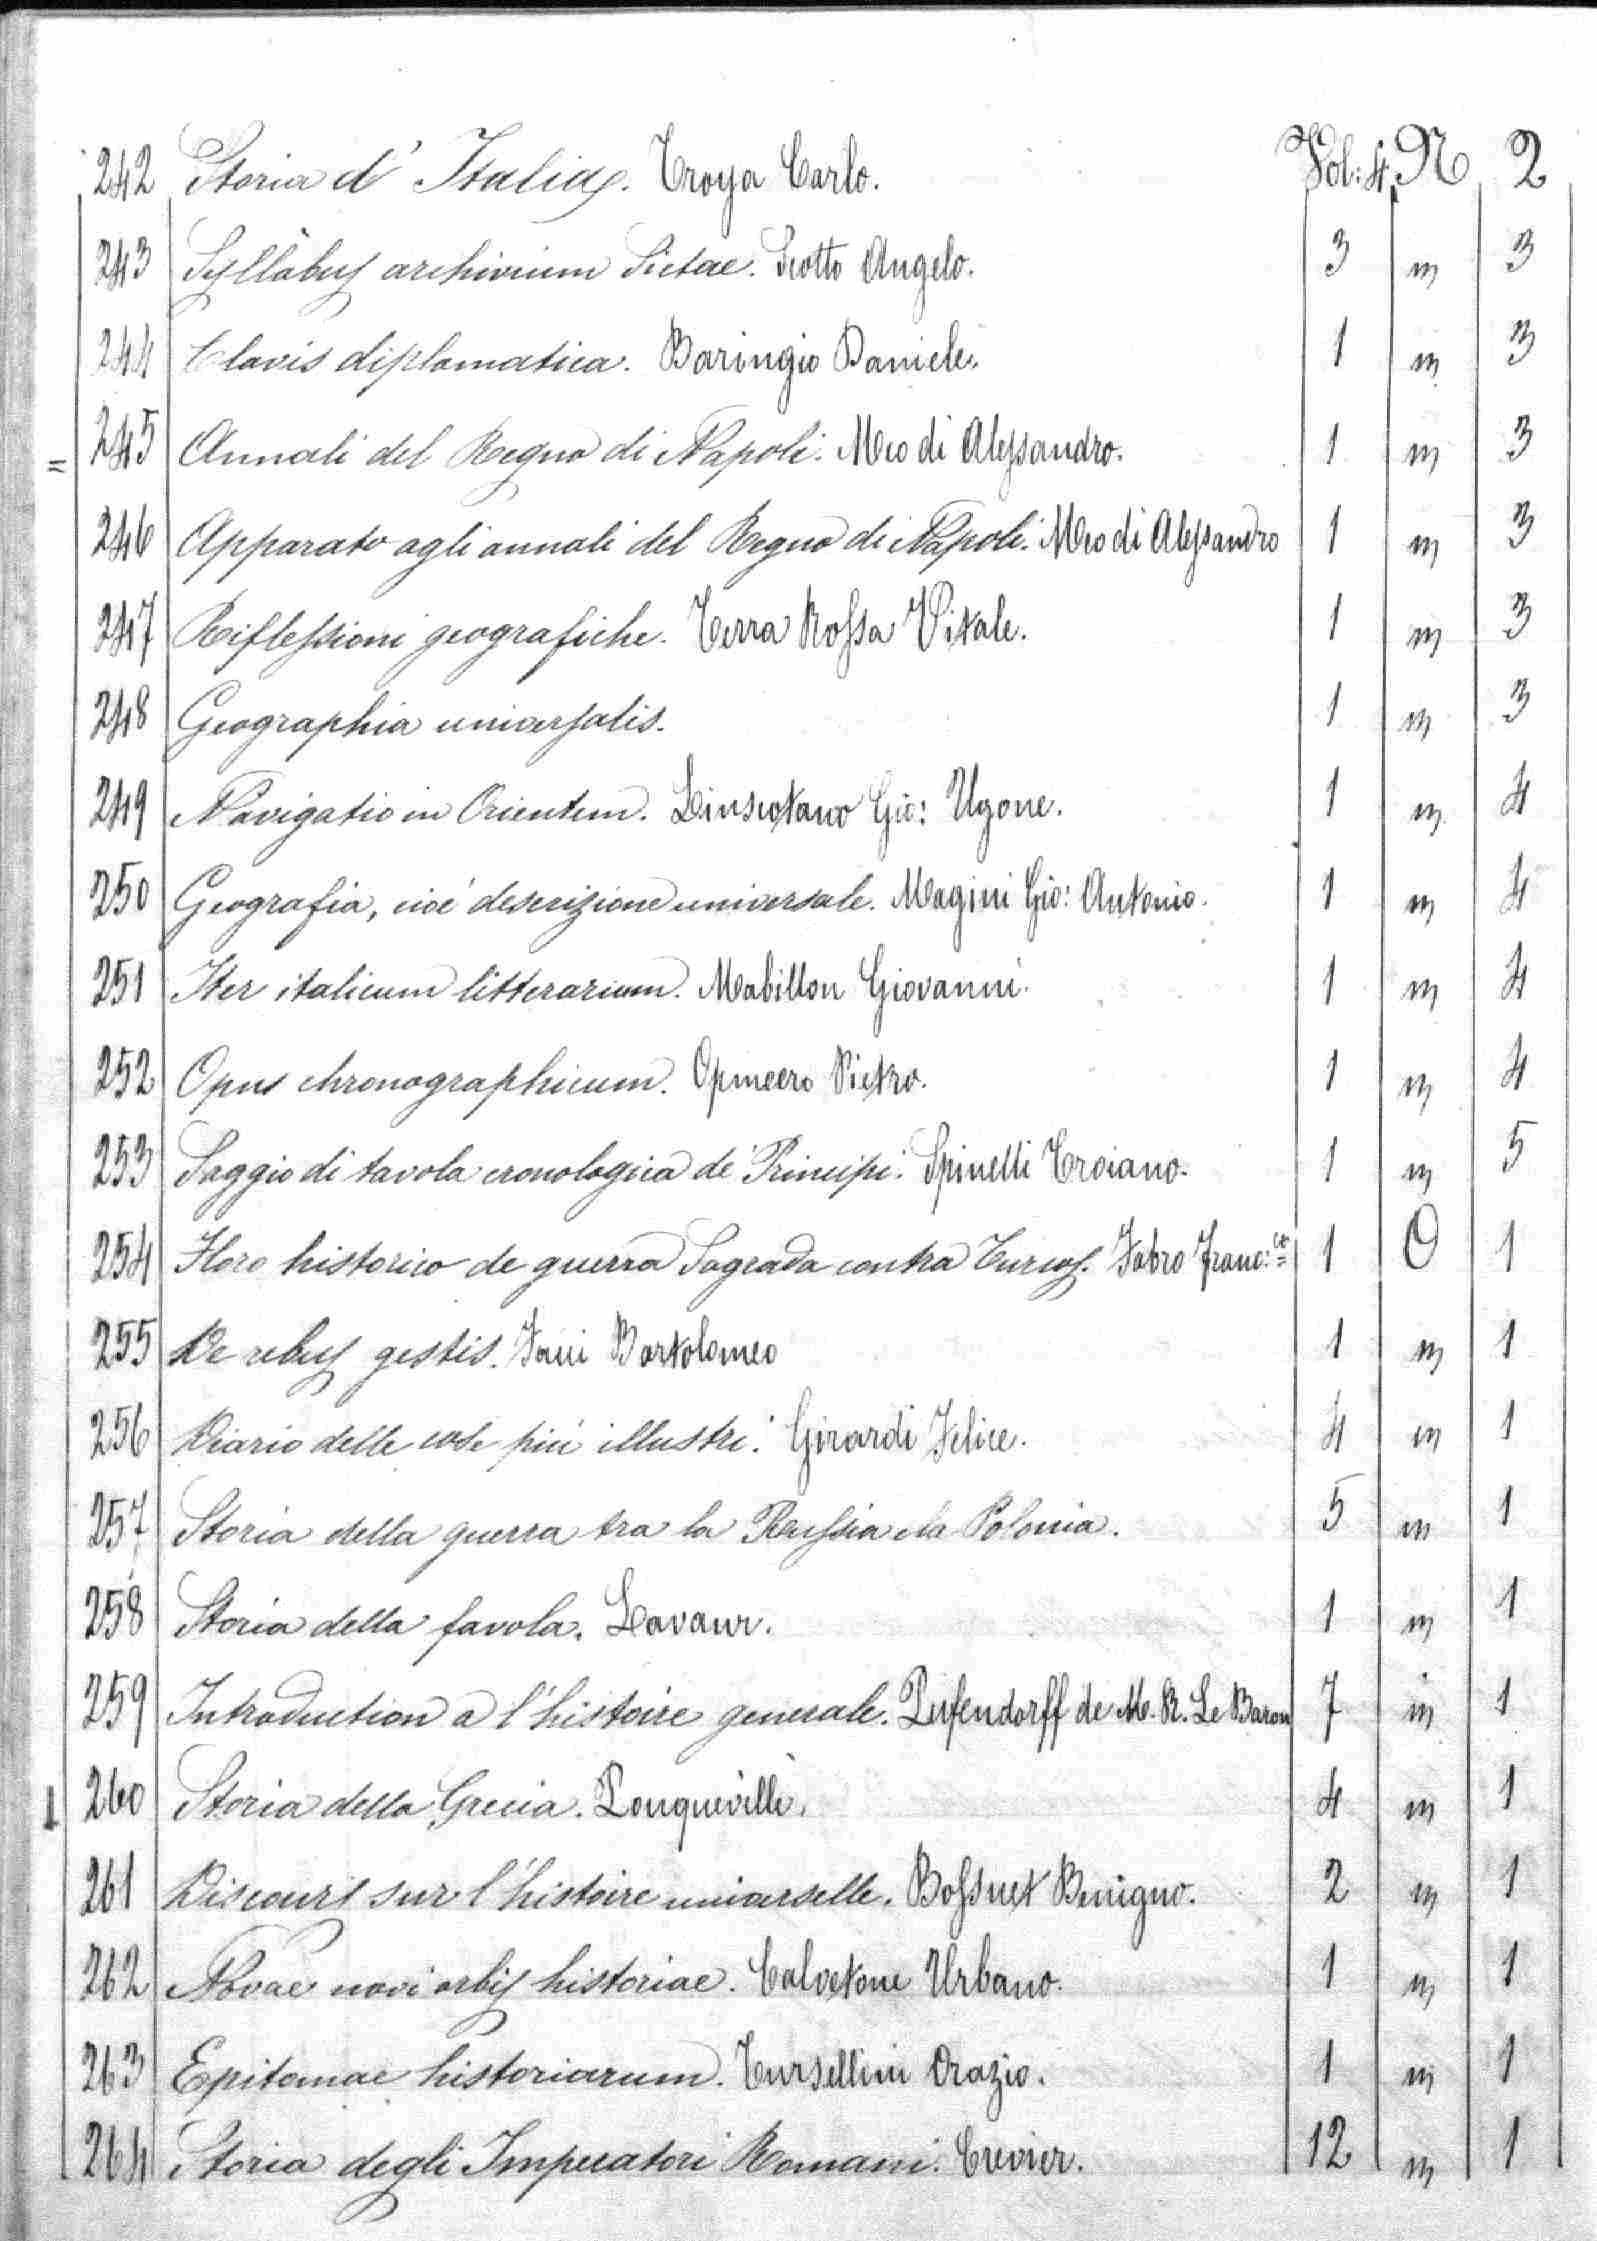 242 Storia d' Italia. Troya Carlo. Vol: 4. N 2
243 Syllabus archivium Sictae. Scotto Angelo. 3 m 3
244 Clavis diplomatica. Baringio Daniele. 1 m 3
= 245 Annali del Regno di Napoli. Meo di Alessandro. 1 m 3
246 Apparato agli annali del Regno di Napoli. Meo di Alessandro 1 m 3
247 Riflessioni geografiche. Terra Rossa Vitale. 1 m 3
248 Geographia universalis. 1 m 3
249 Navigatio in Orientem. Linscotano Gio: Ugone. 1 m 4
250 Geografia, cioé descrizione universale. Magini Gio: Antonio. 1 m 4
251 Iter italicum litterarium. Mabillon Giovanni. 1 m 4
252 Opus chronographicum. Opmeero Pietro. 1 m 4
253 Saggio di tavola cronologica de' Principi. Spinelli Troiano. 1 m 5
254 Floro historico de guerra Sagrada contra Turcos. Fabro Franc:co 1 O 1
255 De rebus gestis. Facii Bartolomeo 1 m 1
256 Diario delle cose piú illustri. Girardi Felice. 4 m 1
257 Storia della guerra tra la Russia e la Polonia. 5 m 1
258 Storia della favola. Lavaur. 1 m 1
259 Introduction a l'histoire generale. Pufendorff de M. R. Le Baron 7 m 1
260 Storia della Grecia. Pouqueville. 4 m 1
261 Discours sur l'histoire universelle. Bossuet Benigno. 2 m 1
262 Novae novi orbis historiae. Calvetone Urbano. 1 m 1
263 Epitomae historiarum. Tursellini Orazio. 1 m 1
264 Storia degli Imperatori Romani. Crevier. 12 m 1